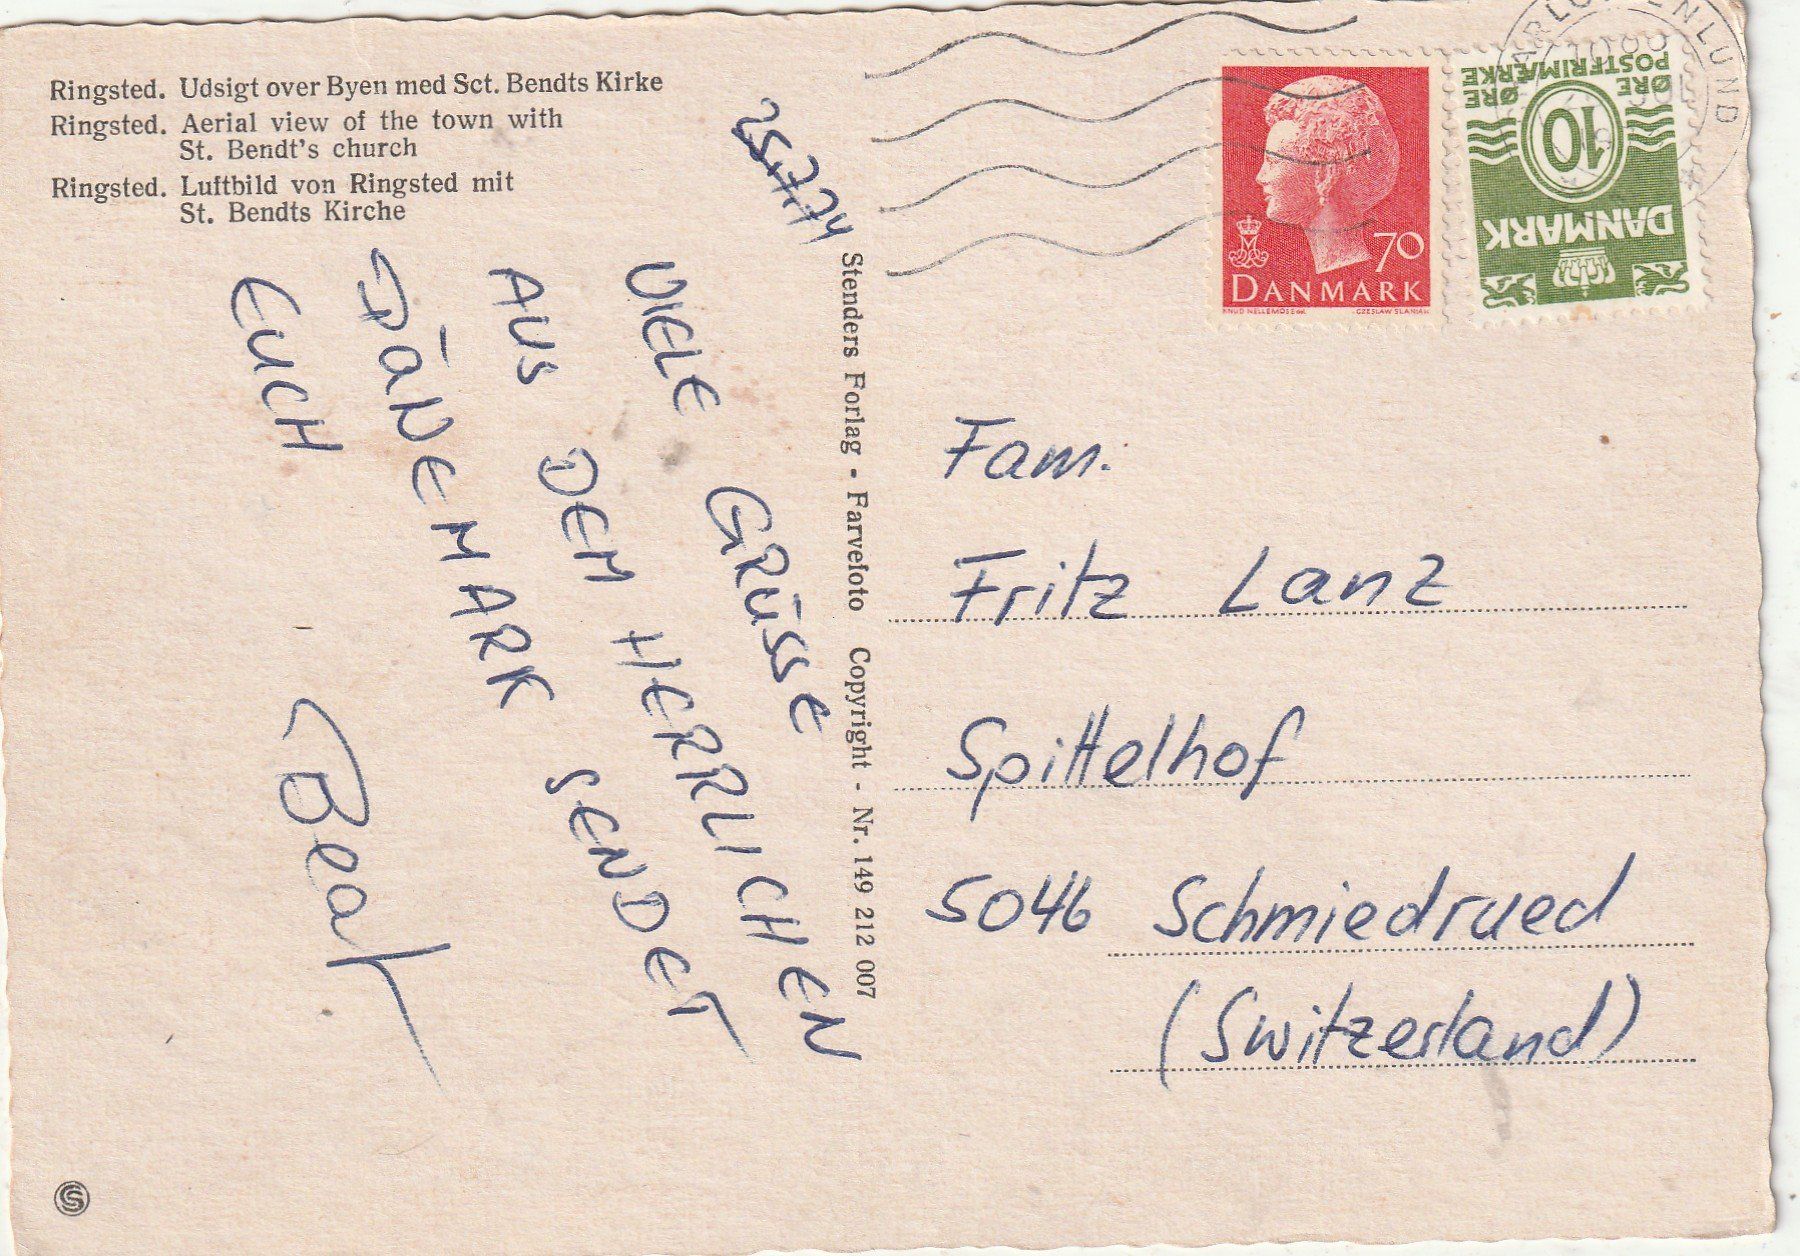 Ringsted. Udsigt over Byen med Sct. Bendts Kirke
Ringsted. Aerial view of the town with
St. Bendt's church
Ringsted. Luftbild von Ringsted mit
St. Bendts Kirche
25.7.74
VIELE GRÜSSE
AUS DEM HERRLICHEN
DÄNEMARK SENDET
EUCH
Beat
Stenders Forlag - Farvefoto Copyright - Nr. 149 212 007
70
DANMARK
KNUD NELLEMOSE del. CZESLAW SLANIA sc.
DANMARK
10
ØRE ØRE
POSTFRIMÆRKE
Fam.
Fritz Lanz
Spittelhof
5046 Schmiedrued
(Switzerland)
S